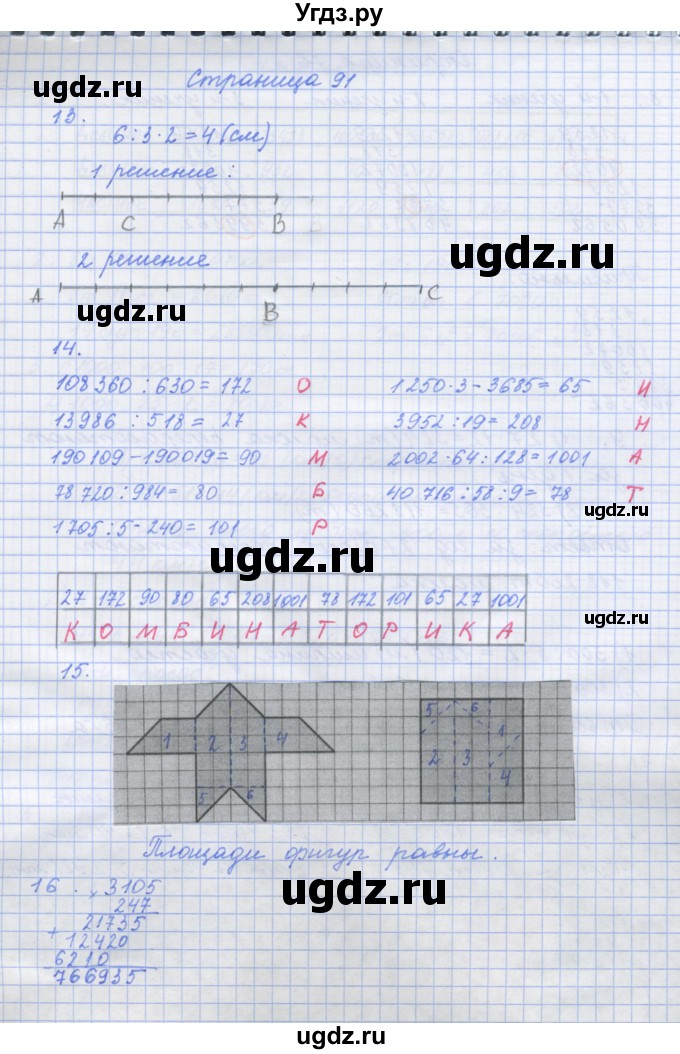 Угдз.ру
ugdz.ru
Страница 91
ugdz.ru
13.
6 : 3 · 2 = 4 (см)
1 решение :
A C B
ugdz.ru
2 решение
A B C
ugdz.ru
14.
108 360 : 630 = 172 О 1 250 · 3 - 3685 = 65 И
13986 : 518 = 27 К 3952 : 19 = 208 Н
190 109 - 190 019 = 90 М 2002 · 64 : 128 = 1001 А
78 720 : 984 = 80 Б 40 716 : 58 : 9 = 78 Т
ugdz.ru
1705 : 5 - 240 = 101 Р
ugdz.ru
27 172 90 80 65 208 1001 78 172 101 65 27 1001
ugdz.ru
К О М Б И Н А Т О Р И К А
15.
5 6
1 2 3 4 1
2 3
4
5 6
Площади фигур равны.
16. × 3105
247
ugdz.ru
21735
+ 12420
6210
766935
ugdz.ru
ugdz.ru